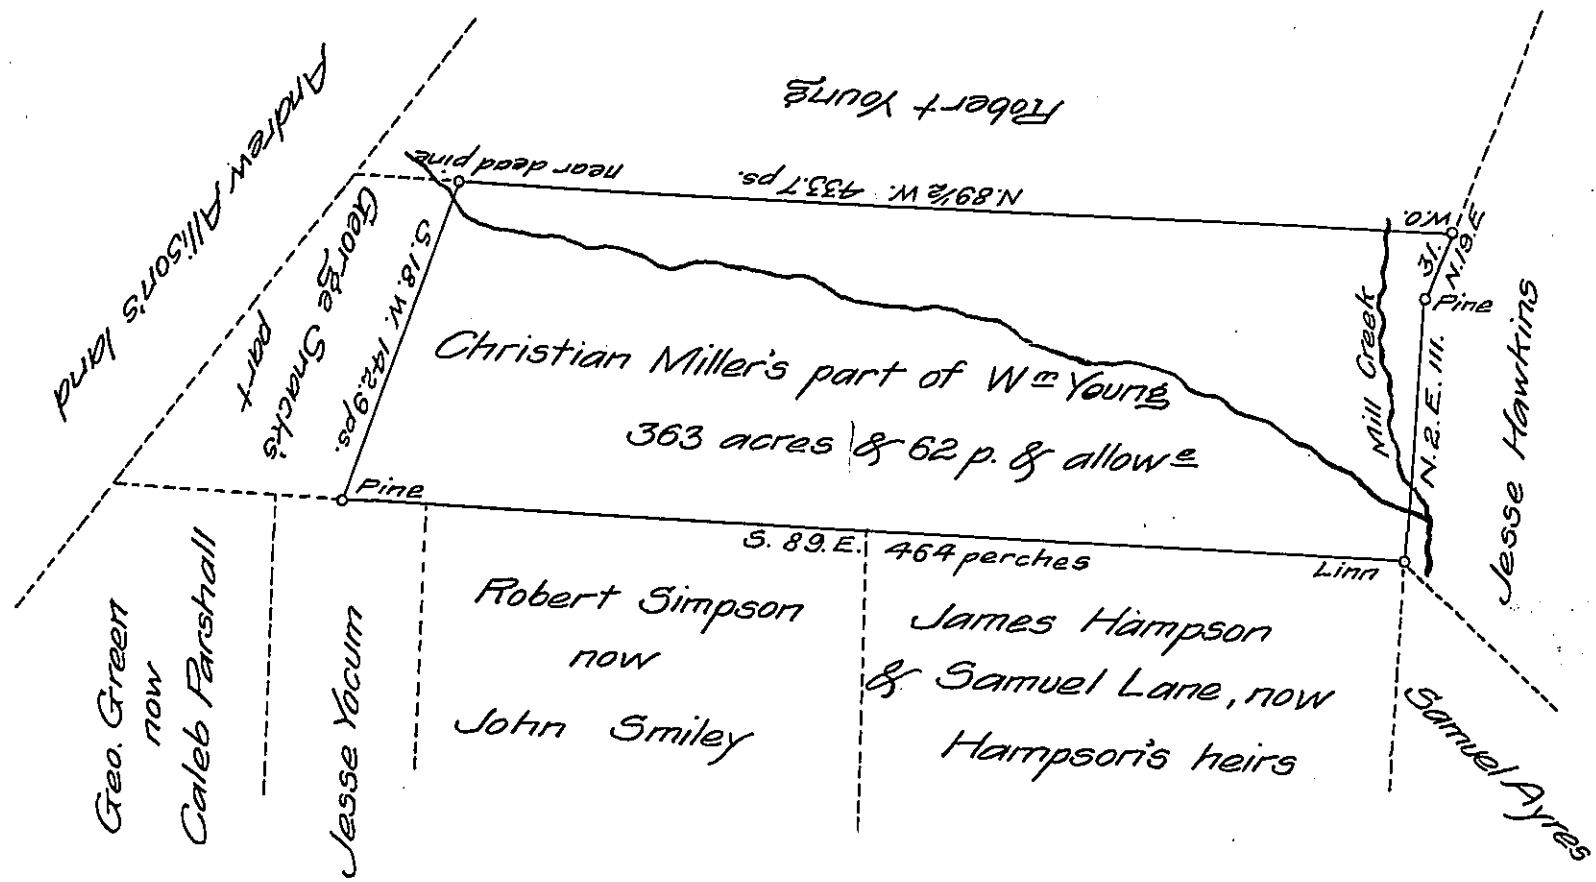 Andrew Allison's land
Robert Young
near dead pine
N. 89½ W. 433.7 ps.
W.O.
31.
N. 19. E
Pine
George Snack's
part
S. 18. W. 142.9 ps.
Christian Miller's part of Wm Young
363 acres & 62 p. & allowe
Mill Creek
N. 2. E. 111.
Jesse Hawkins
Pine
S. 89. E. 464 perches
Linn
Geo. Green
now
Caleb Parshall
Jesse Yocum
Robert Simpson
now
John Smiley
James Hampson
& Samuel Lane, now
Hampson's heirs
Samuel Ayres